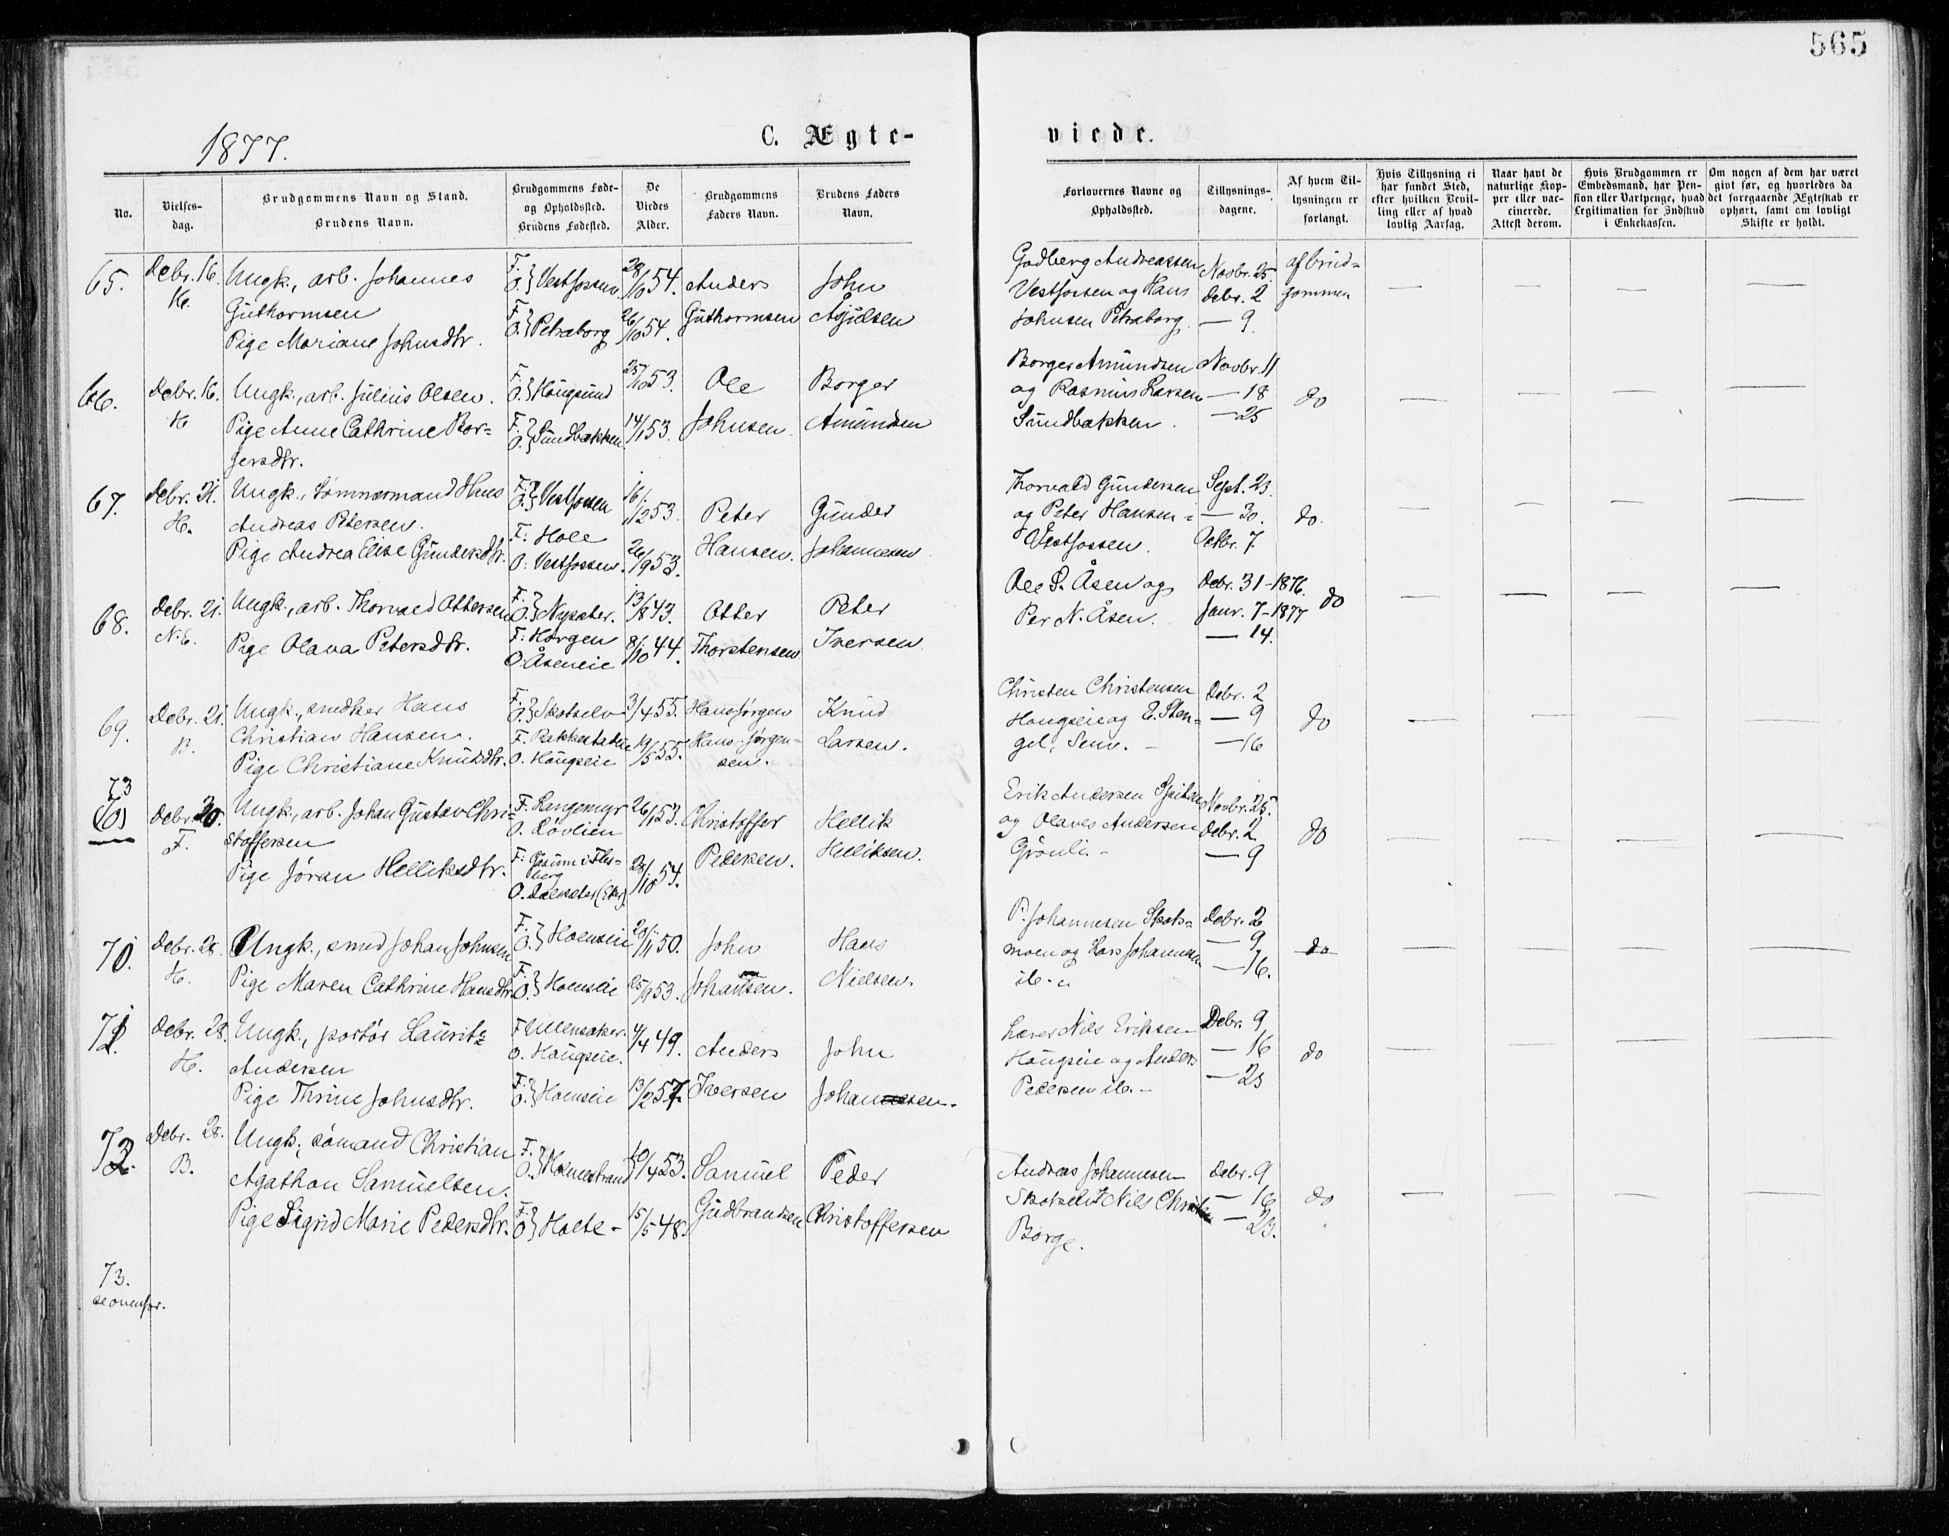 565
1877.
C. Ægte-
viede.
No.
Vielses-
dag.
Brudgommens Navn og Stand.
Brudens Navn.
Brudgommens Føde-
og Opholdssted.
Brudens Fødested.
De
Viedes
Alder.
Brudgommens
Faders Navn.
Brudens Faders
Navn.
Forlovernes Navne og
Opholdssted.
Tillysnings-
dagene.
Af hvem Til-
lysningen er
forlangt.
Hvis Tillysning ei
har fundet Sted,
efter hvilken Bevil-
ling eller af hvad
lovlig Aarsag.
Naar havt de
naturlige Kop-
per eller vac-
cinerede.
Attest derom.
Hvis Brudgommen er
Embedsmand, har Pen-
sion eller Vartpenge, hvad
Legitimation for Indskud
i Enkekassen.
Om nogen af dem har været
givt før, og hvorledes da
det foregaaende Ægteskab er
ophørt, samt om lovligt
Skifte er holdt.
65.
Debr. 16.
H.
Ungk., arb. Johannes
Guthormsen
Pige Mariane Johnsdtr.
F. O. } Vestfossen
F. O. } Petraborg
28/10 54.
26/10 54.
Anders
Guthormsen
John
Godberg Andreassen
Vestfossen og Hans
Johnsen Petraborg.
Novbr. 25
Debr. 2
— 9.
af brud-
gommen
— — — —
66.
Debr. 16.
H
Ungk., arb. Julius Olsen.
Pige Anne Cathrine Bor-
gersdtr.
F. O. } Hougsund
F. O. } Sundbakken
25/10 53.
14/1 53.
Ole
Johnsen.
Borger
Amundsen
Borger Amundsen
og Rasmus Larsen
Sundbakken.
Novbr. 11
— 18
— 25
do
— — — —
67.
Debr. 21.
H.
Ungk., Tømmermand Hans
Andreas Petersen.
Pige Andrea Elise Gundersdtr.
F. O. } Vestfossen
F. Hole
O. Vestfossen.
16/12 53.
26/9 53.
Peter
Hansen.
Gunder
Johannesen
Thorvald Gundersen
og Peter Hansen -
Vestfossen.
Sept. 23.
— 30.
Octbr. 7.
do.
— — — —
68.
Debr. 21.
N.E.
Ungk., arb. Thorvald Ottersen
Pige Olava Petersdtr.
F. O. } Nysæter.
F. Horgen
O. Åseneie
13/8 43.
8/10 44.
Otter
Thorstensen
Peter
Iversen
Ole P. Åsen og
Per N. Åsen.
Debr. 31 - 1876.
Janr. 7 - 1877
— 14.
do
— — — —
69.
Debr. 21.
B.
Ungk., snedker Hans
Christian Hansen.
Pige Christiane Knudsdtr.
F. O. } Skotselv
F. Bakkestadeie
O. Hougseie
3/4 55.
19/5 55.
Hans Jørgen
Hans Jørgen-
sen.
Knud
Larsen.
Christen Christensen
Hougseie og E. Sten-
gel, Senr. -
Debr. 2
— 9
— 16
do
— — — —
73
70
Debr. 20.
F.
Ungk., arb. Johan Gustav Chri-
stoffersen
Pige Jøran Helliksdtr.
F. Langemyr
O. Løvlien
F. i Fles-
berg
O. Dalsæter (Eker)
26/1 53.
28/10 54.
Christoffer
Pedersen.
Hellik
Helliksen.
Erik Andersen
og Olaves Andersen
Grønli. -
Novbr. 25.
Debr. 2
— 9
do
— — — —
70.
Debr. 28.
H.
Ungk., smed Johan Johnsen
Pige Maren Cathrine Hansdtr.
F. O. } Hoenseie
F. O. } Hoenseie
28/11 50.
25/9 53.
John
Johansen.
Hans
Nielsen.
P. Johannesen Skots-
moen og Lars Johannesen
ib. -
Debr. 2
— 9
— 16.
do
— — — —
71.
Debr. 28.
H.
Ungk., portør Lauritz
Andersen
Pige Thrine Johnsdtr.
F. Ullensaker.
O. Hougseie.
F. O. } Hoenseie
4/4 49.
13/2 57.
Anders
Iversen
John
Johannesen.
Lærer Nils Eriksen
Hougseie og Anders
Pedersen ib. -
Debr. 9
— 16
— 23
do
— — — —
72.
Debr. 28.
B.
Ungk., sømand Christian
Agathon Samuelsen.
Pige Sigrid Marie Pedersdtr.
F. O. } Holmestrand
F. O. } Holte -
20/4 53.
15/5 48.
Samuel
Gudbrandsen
Peder
Christoffersen
Andreas Johannesen
Skotselv Nils Christen
Borge.
Debr. 9
— 16
— 23.
do
— — — —
73.
se ovenfor.